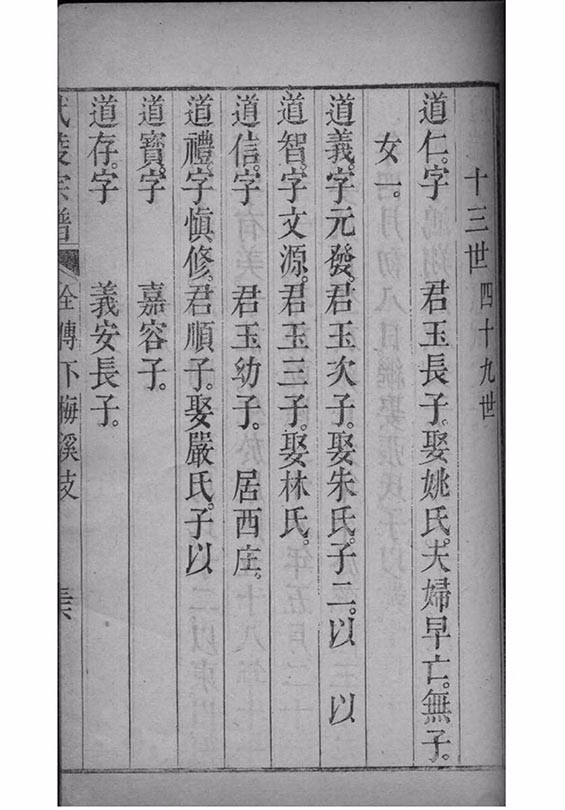 十三世 四十九世
道仁。字　君玉長子。娶姚氏。夫婦早亡。無子。
女一。
道義。字元發。君玉次子。娶朱氏。子二。以　以
道智。字文源。君玉三子。娶林氏。
道信。字　君玉幼子。　居西庄。
道禮。字慎修。君順子。娶嚴氏。子以
道寳。字　嘉容子。
道存。字　義安長子。
宗譜　全傳下梅溪支